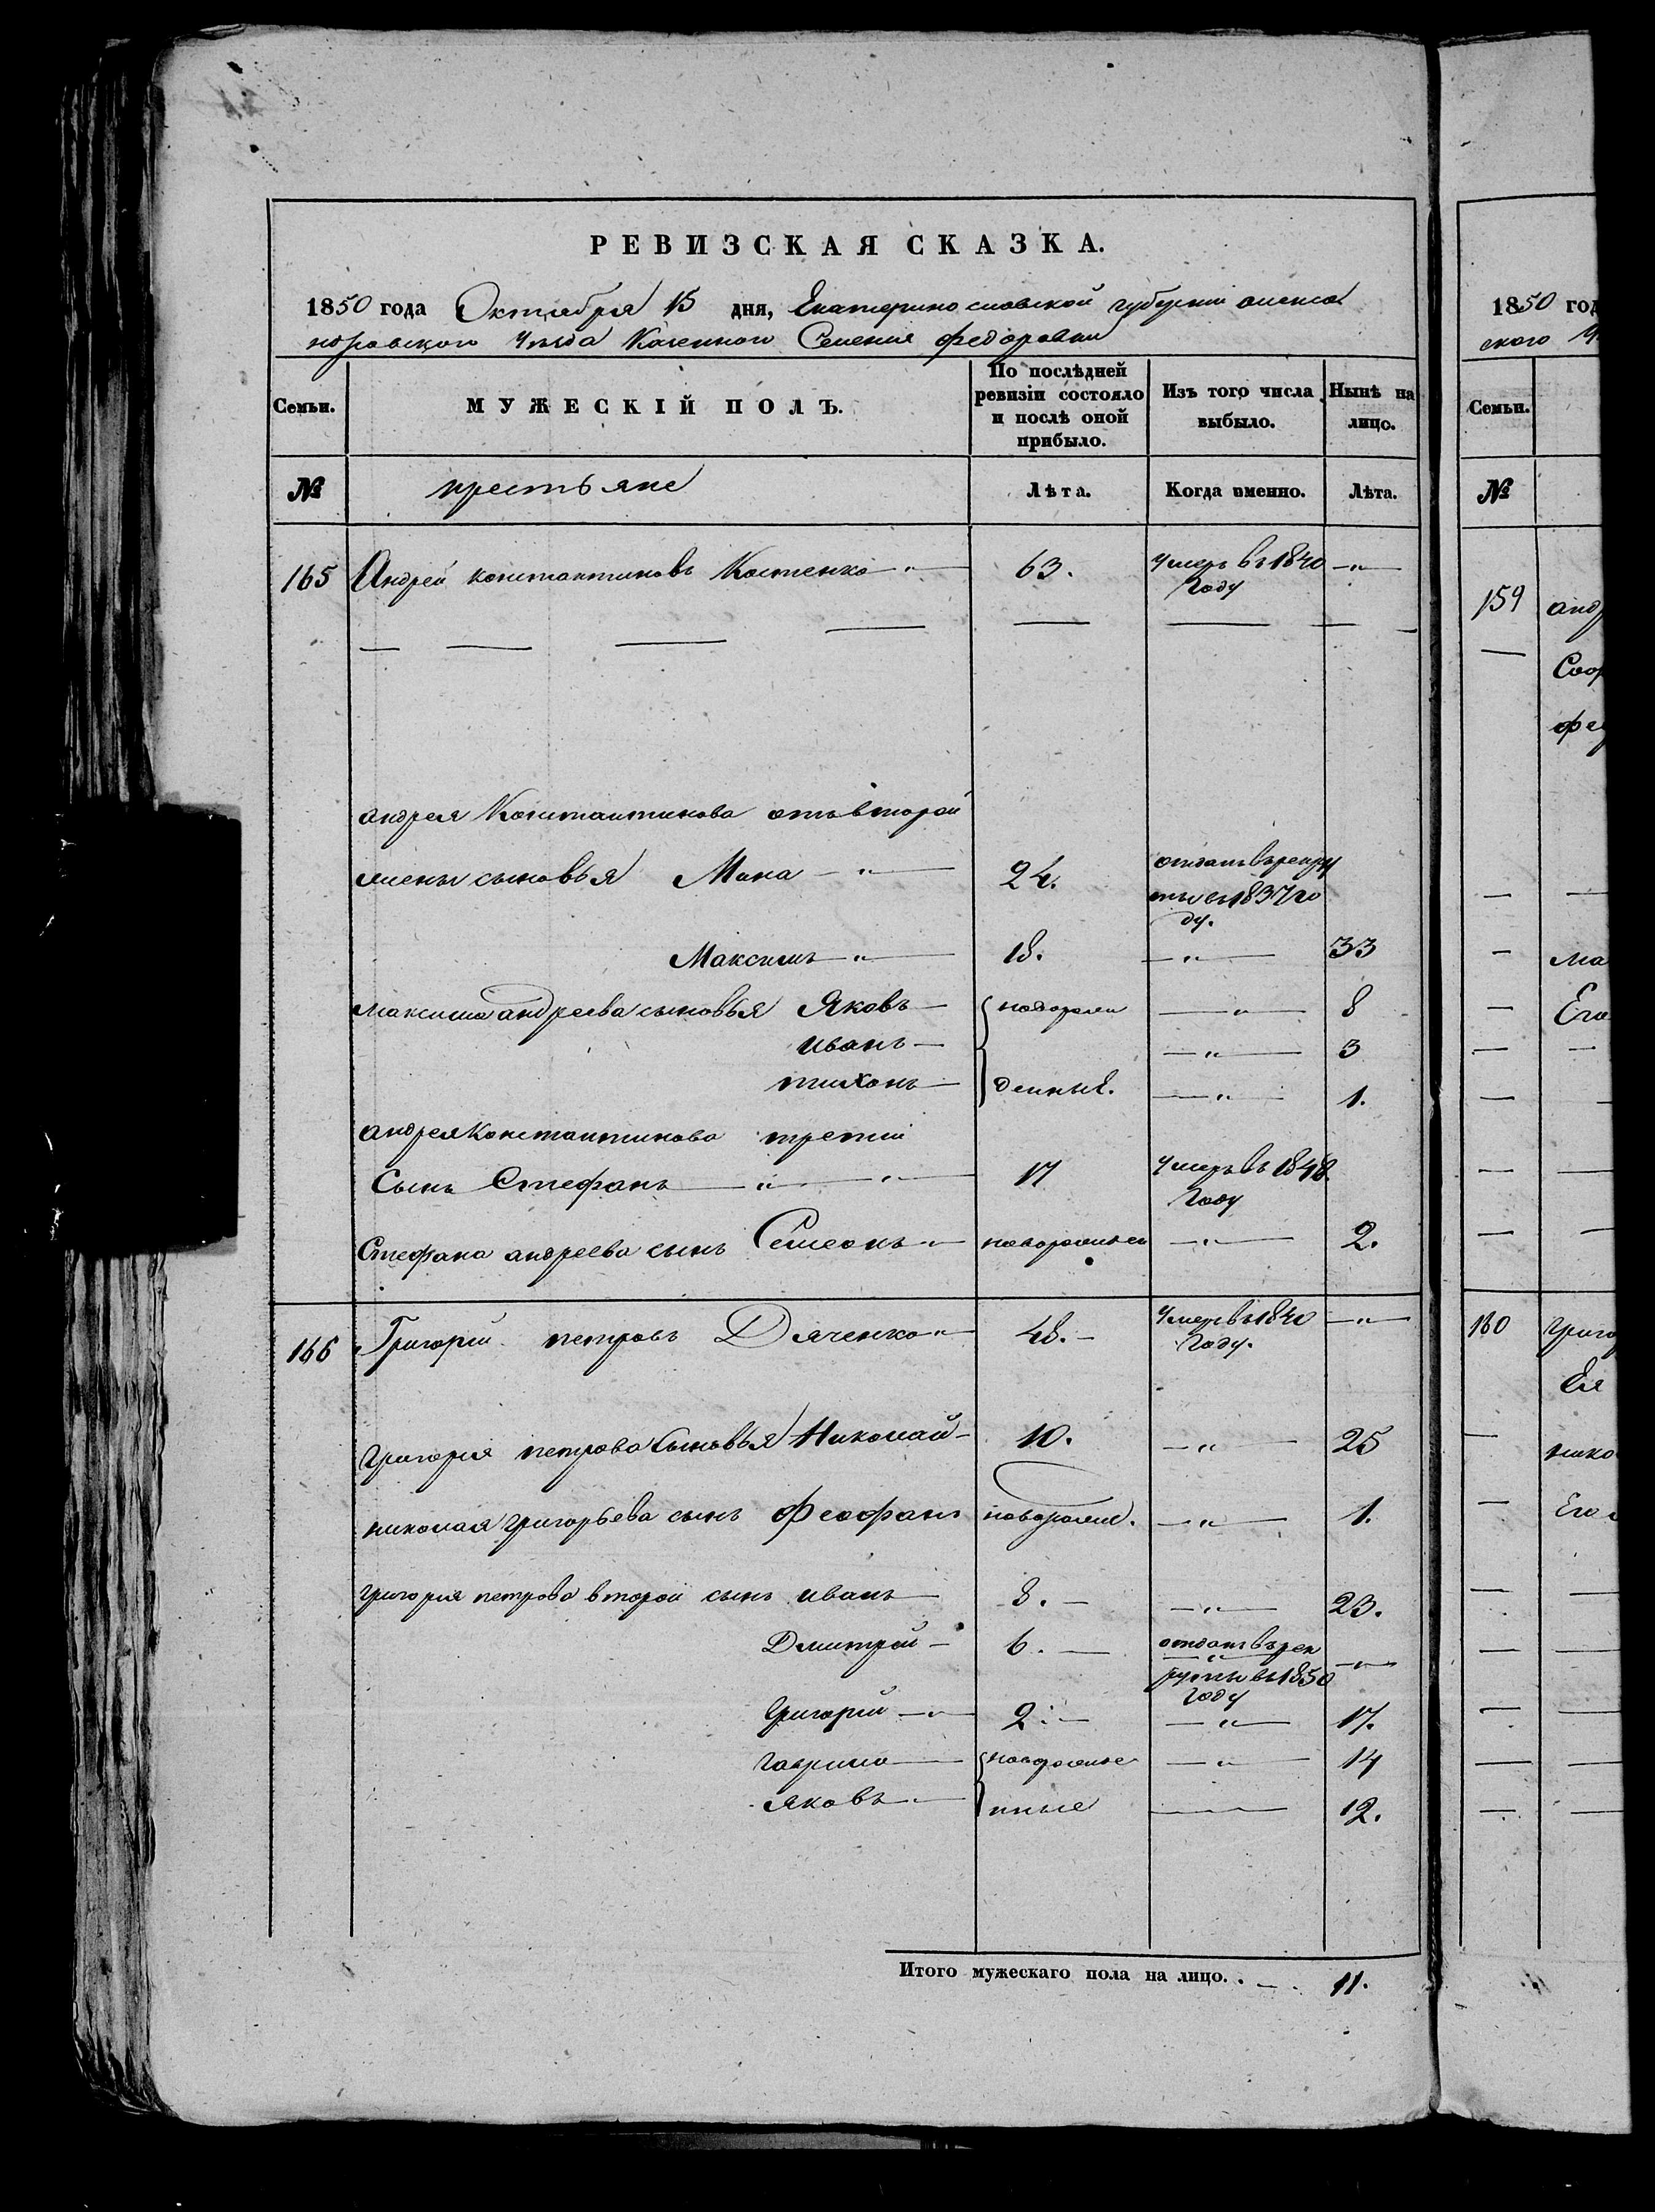 РЕВИЗСКАЯ СКАЗКА.
1850 года Октября 15 дня, Екатеринославской губернии алекса
ндровского Уезда Казенного Селения федоровки
Семьи. МУЖЕСКІЙ ПОЛЪ. По послѣдней ревизіи состояло и послѣ оной прибыло. Изъ того числа выбыло. Нынѣ на лицо.
№ крестьяне Лѣта. Когда именно. Лѣта.
165 Андрей константиновъ Костенко 63. Умеръ въ 1840 году
андрея Константинова отъ второй
жены сыновья Мона 24. отданъ въ рекру
ты въ 1837 го
ду.
Максимъ 18. 33
максима андреева сыновья Яковъ новорож 8
иванъ 3
тихонъ денные. 1.
андрея Константинова третий
Сынъ Стефанъ 17 Умеръ въ 1848 году
Стефана андреева сынъ Семеонъ 2.
166 Григорій петровъ Дяченко 48. Умеръ въ 1840 году.
григория петрова сыновья Николай 10. 25
николая григорьева сынъ феофанъ новорожд. 1.
григория петрова второй сынъ иванъ 8. 23.
Дмитрий 6. отданъ въ рек
руты въ 1850
году
Григорій 2. 17.
гаврило новорожде 14
яковъ нные 12.
Итого мужескаго пола на лицо. 11.
1850 год
ского У
Семьи.
№
159 анд
фе
ма
Его
160 григо
Ея
нико
Его